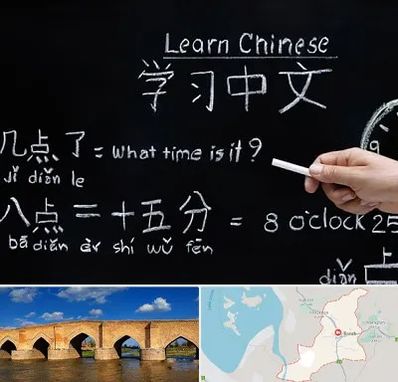 Learn Chinese
学习中文
几点了 = what time is it?
Jǐ diǎn le
八点二十五分 = 8 o'clock 25
bā diǎn èr shí wǔ fēn
9
上
diǎn
Bonab